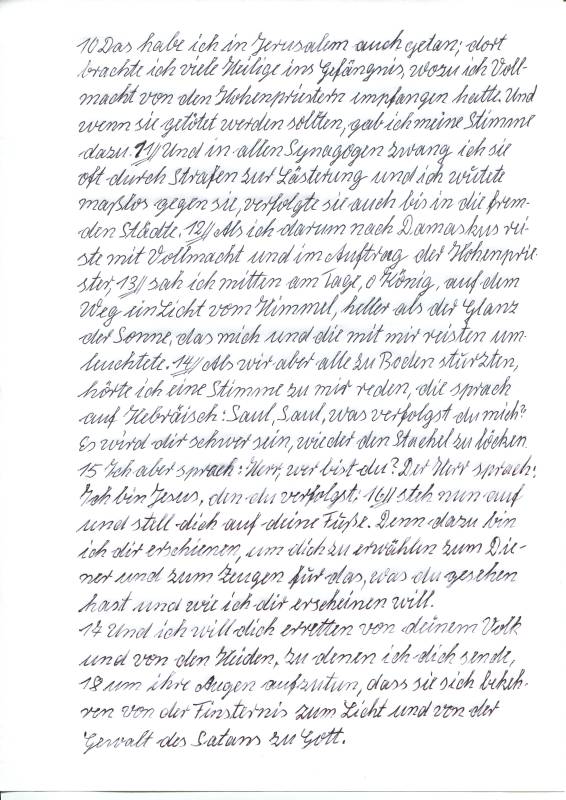 10 Das habe ich in Jerusalem auch getan; dort
brachte ich viele Heilige ins Gefängnis, wozu ich Voll-
macht von den Hohenpriestern empfangen hatte. Und
wenn sie getötet werden sollten, gab ich meine Stimme
dazu. 11// Und in allen Synagogen zwang ich sie
oft durch Strafen zur Lästerung und ich wütete
maßlos gegen sie, verfolgte sie auch bis in die frem-
den Städte. 12// Als ich darum nach Damaskus rei-
ste mit Vollmacht und im Auftrag der Hohenprie-
ster, 13// sah ich mitten am Tage, o König, auf dem
Weg ein Licht vom Himmel, heller als der Glanz
der Sonne, das mich und die mit mir reisten um-
leuchtete. 14// Als wir aber alle zu Boden stürzten,
hörte ich eine Stimme zu mir reden, die sprach
auf Hebräisch: Saul, Saul, was verfolgst du mich?
Es wird dir schwer sein, wieder den Stachel zu löcken
15 Ich aber sprach: Herr, wer bist du? Der Herr sprach:
Ich bin Jesus, den du verfolgst; 16// steh nun auf
und stell dich auf deine Füße. Denn dazu bin
ich dir erschienen, um dich zu erwählen zum Die-
ner und zum Zeugen für das, was du gesehen
hast und wie ich dir erscheinen will.
17 Und ich will dich erretten von deinem Volk
und von den Heiden, zu denen ich dich sende,
18 um ihre Augen aufzutun, dass sie sich bekeh-
ren von der Finsternis zum Licht und von der
Gewalt des Satans zu Gott.